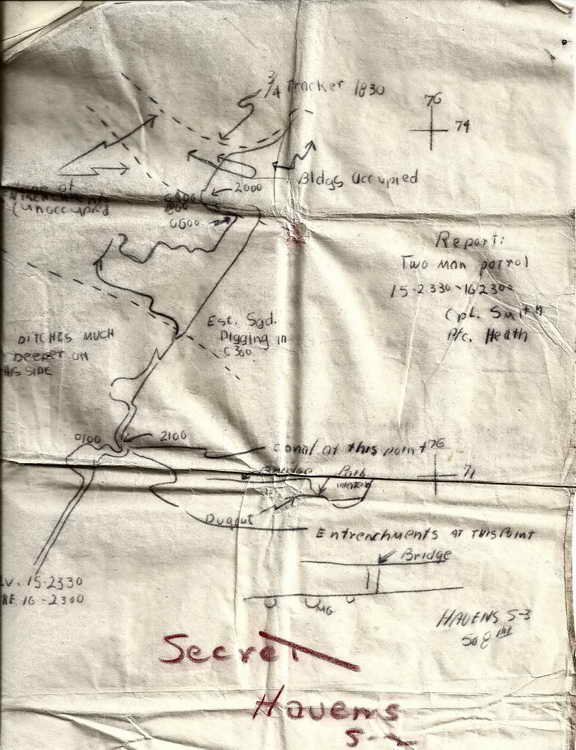 3/4 Tracker 1830
76
74
Bldgs Occupied
2000
(unoccupied
0500
Report:
Two man patrol
15-2330-162300
Cpl. Smith
Pfc. Heath
Est. Sqd.
Digging in
0300
DITCHES MUCH
DEEPER ON
HIS SIDE
0100
2100
Canal at this point
76
71
Bridge
Path
Dugout
Entrenchments AT THIS POINT
Bridge
MG
LV. 15-2330
RE 16-2300
HAVENS S-3
508th
Secret
Havens
S-2